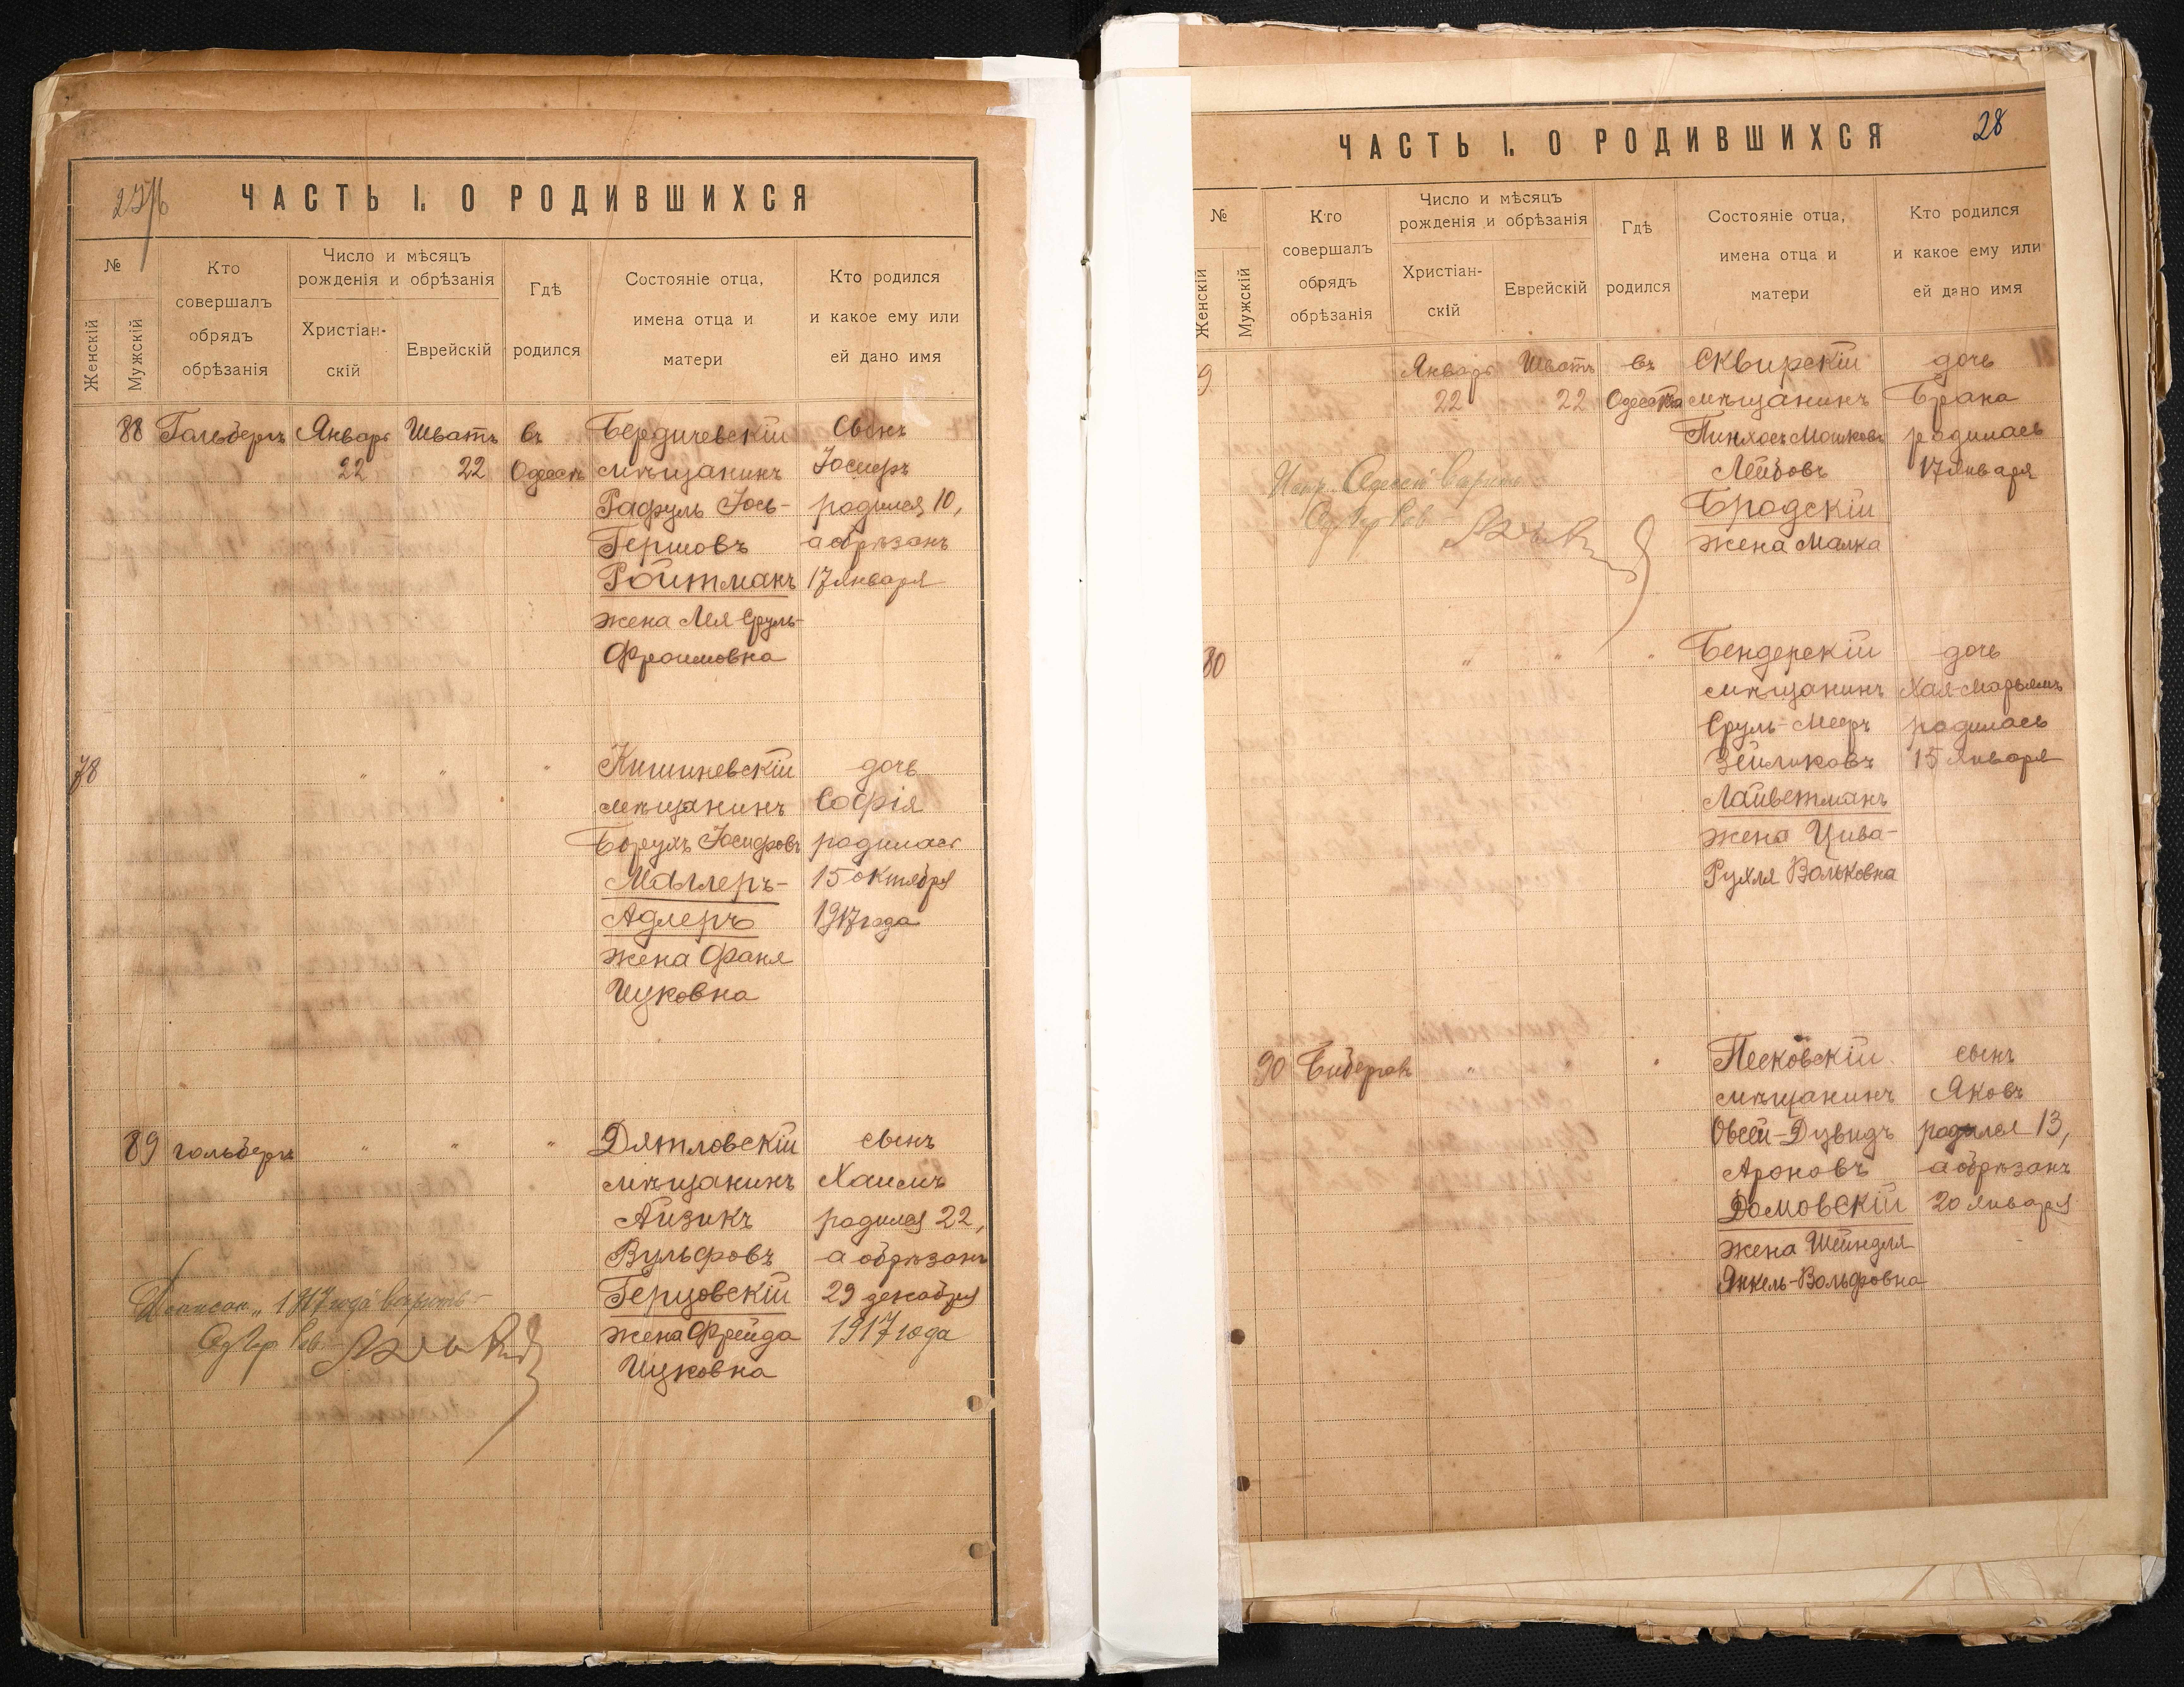 27/об
ЧАСТЬ I. О РОДИВШИХСЯ
№
Женскій
Мужскій
Кто совершалъ обрядъ обрѣзанія
Число и мѣсяцъ рожденія и обрѣзанія
Христіан-
скій
Еврейскій
Гдѣ родился
Состояніе отца, имена отца и матери
Кто родился и какое ему или ей дано имя
88 Гольбергъ Январь Шватъ въ Бердичевскій Сынъ
22 22 Одессѣ мѣщанинъ Іосифъ
Рафуль Іось- родился 10,
Гершовъ а обрѣзанъ
Ройтманъ 17 Января
жена Лея Сруль-
Фроимовна
78 " " " Кишиневскій дочь
мѣщанинъ Софія
Борухъ Іосифовъ родилась
Маллеръ- 15 октября
Адлеръ 1917 года
жена Фаня
Ицковна
89 Гольбергъ " " " Дятловскій сынъ
мѣщанинъ Хаимъ
Айзикъ родился 22,
Вульфовъ а обрѣзанъ
Герцовскій 29 декабря
жена Фрейда 1917 года
Ицковна
1917 года вѣрить
Од Гор Рав
28
ЧАСТЬ I. О РОДИВШИХСЯ
№
Женскій
Мужскій
Кто совершалъ обрядъ обрѣзанія
Число и мѣсяцъ рожденія и обрѣзанія
Христіан-
скій
Еврейскій
Гдѣ родился
Состояніе отца, имена отца и матери
Кто родился и какое ему или ей дано имя
9 Январь Шватъ въ Сквирскій дочь
22 22 Одессѣ мѣщанинъ Брана
Пинхосъ Мошковъ родилась
Лейбовъ 17 Января
Бродскій
жена Малка
Одессѣ вѣрить
Од Гор Рав
80 " " " Бендерскій дочь
мѣщанинъ Хая-Марьямъ
Сруль-Мееръ родилась
Зейликовъ 15 Января
Лайветманъ
жена Цива-
Рухля Вольковна
90 " " Песковскій сынъ
мѣщанинъ Яковъ
Овсей-Дувидъ родился 13,
Ароновъ а обрѣзанъ
Домовскій 20 Января
жена Шейндля
Янкель-Вольфовна